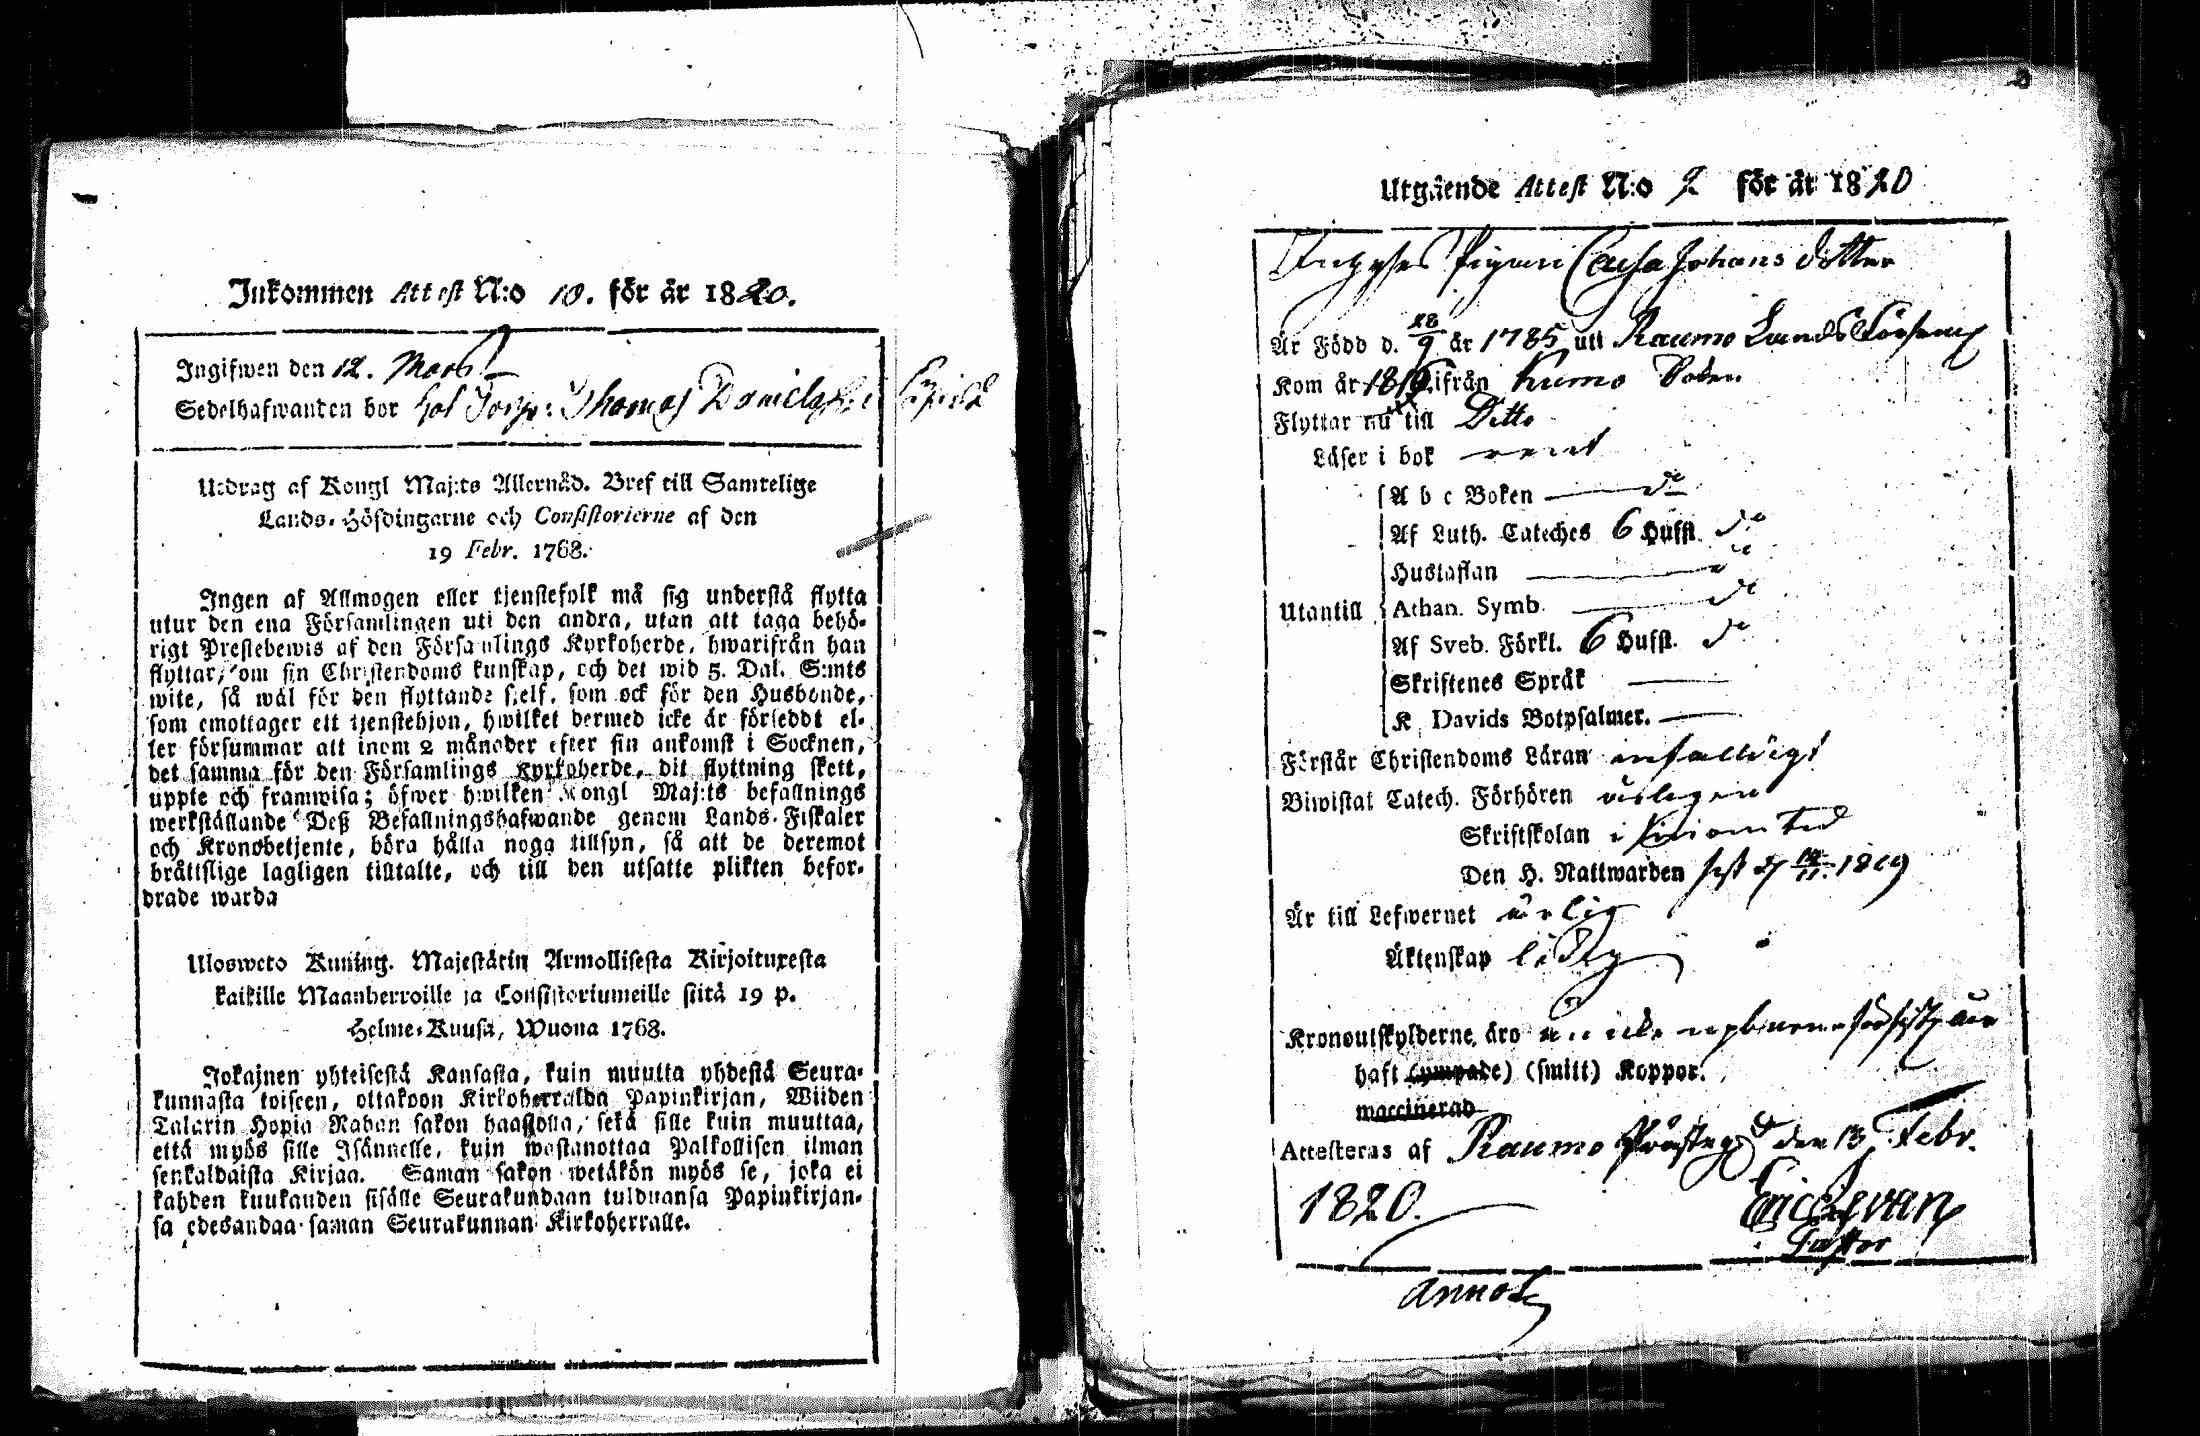 Inkommen Attest N:o 10. för år 1820.
Ingifwen den 12. Mars
Sedelhafwanden bor hos Torp: Thomas
Utdrag af Kongl Maj:ts Allernåd. Bref till Samtelige
Lands-Höfdingarne och Consistorierne af den
19 Febr. 1768.
Ingen af Allmogen eller tjenstefolk må sig understå flytta
utur den ena Församlingen uti den andra, utan att taga behö-
rigt Prestebewis af den Församlings Kyrkoherde, hwarifrån han
flyttar, om sin Christendoms kunskap, och det wid 5. Dal. S:mts
wite, så wäl för den flyttande sjelf, som ock för den Husbonde,
som emottager ett tjenstehjon, hwilket dermed icke är försedt el-
ler försummar att inom 2 månader efter sin ankomst i Socknen,
det samma för den Församlings Kyrkoherde, dit flyttning skett,
uppte och framwisa; öfwer hwilken Kongl Maj:ts befallnings
werkställande Deß Befallningshafwande genom Lands-Fiskaler
och Kronobetjente, böra hålla noga tillsyn, så att de deremot
bråttslige lagligen tilltalte, och till den utsatte plikten befor-
drade warda
Ulosweto Kuning. Majestätin Armollisesta Kirjoituxesta
kaikille Maanherroille ja Consistoriumeille siitä 19 p.
Helme-Kuusa, Wuona 1768.
Jokainen yhteisestä Kansasta, kuin muutta yhdestä Seura-
kunnasta toiseen, ottakoon Kirkoherralda Papinkirjan, Wiiden
Talarin Hopia Rahan sakon haastolla, sekä sille kuin muuttaa,
että myös sille Isännelle, kuin wastanottaa Palkollisen ilman
senkaldaista Kirjaa. Saman sakon wetäkön myös se, joka ei
kahden kuukauden sisälle Seurakundaan tulduansa Papinkirjan-
sa edesandaa saman Seurakunnan Kirkoherralle.
Utgående Attest N:o 2 för år 1820
Pigan Caisa Johans dotter
Är Född d. 28/9 år 1785 uti Raumo Lands Församl
Kom år ifrån Kumo Socken
Flyttar nu till Ditto
Läser i bok rent
Utantill
A b c Boken do
Af Luth. Cateches 6 Hufst. do
Hustaflan do
Athan. Symb. do
Af Sveb. Förkl. 6 Hufst. do
Skriftenes Språk
K. Davids Botpsalmer.
Förstår Christendoms Läran enfaldigt
Biwistat Catech. Förhören årligen
Skriftskolan i sinom tid
Den H. Nattwarden sist d 1819
Är till Lefwernet ärlig
Äktenskap ledig
Kronoutskylderne äro
haft (ympade) (smitt) Koppor.
vaccinerad
Attesteras af Raumo Prästegd den 13 Febr.
1820.
Pastor
Annot